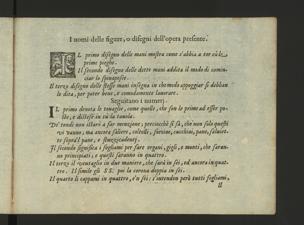 I nomi delle figure, o disegni dell'opera presente.
IL primo disegno delle mani mostra come s'abbia a tor sù le
prime pieghe.
Il secondo disegno delle dette mani addita il modo di comin-
ciar le spinapesce.
Il terzo disegno delle stesse mani insegna in che modo appoggiar si debban
le dita, per poter bene, e comodamente lavorare.
Seguitano i numeri.
IL primo denota le tovaglie, come quelle, che son le prime ad esser po-
ste, e distese in sù la tavola.
De' tondi non illarò a far menzione; perciocchè si sà, che non solo questi
vi vanno, ma ancora saliere, coltelli, forcine, cucchiai, pane, salviet-
te sopra'l pane, e stuzzicadenti.
Il secondo significa i fogliami per fare organi, gigli, e monti, che saran-
no principiati, e questi saranno in quattro.
Il terzo il ventaglio in due maniere, che sarà in sei, ed ancora in quat-
tro. Il simile gli SS. poi la corona doppia in sei.
Il quarto li cappami in quattro, e'n sei; s'intenden però tutti fogliami,
Il